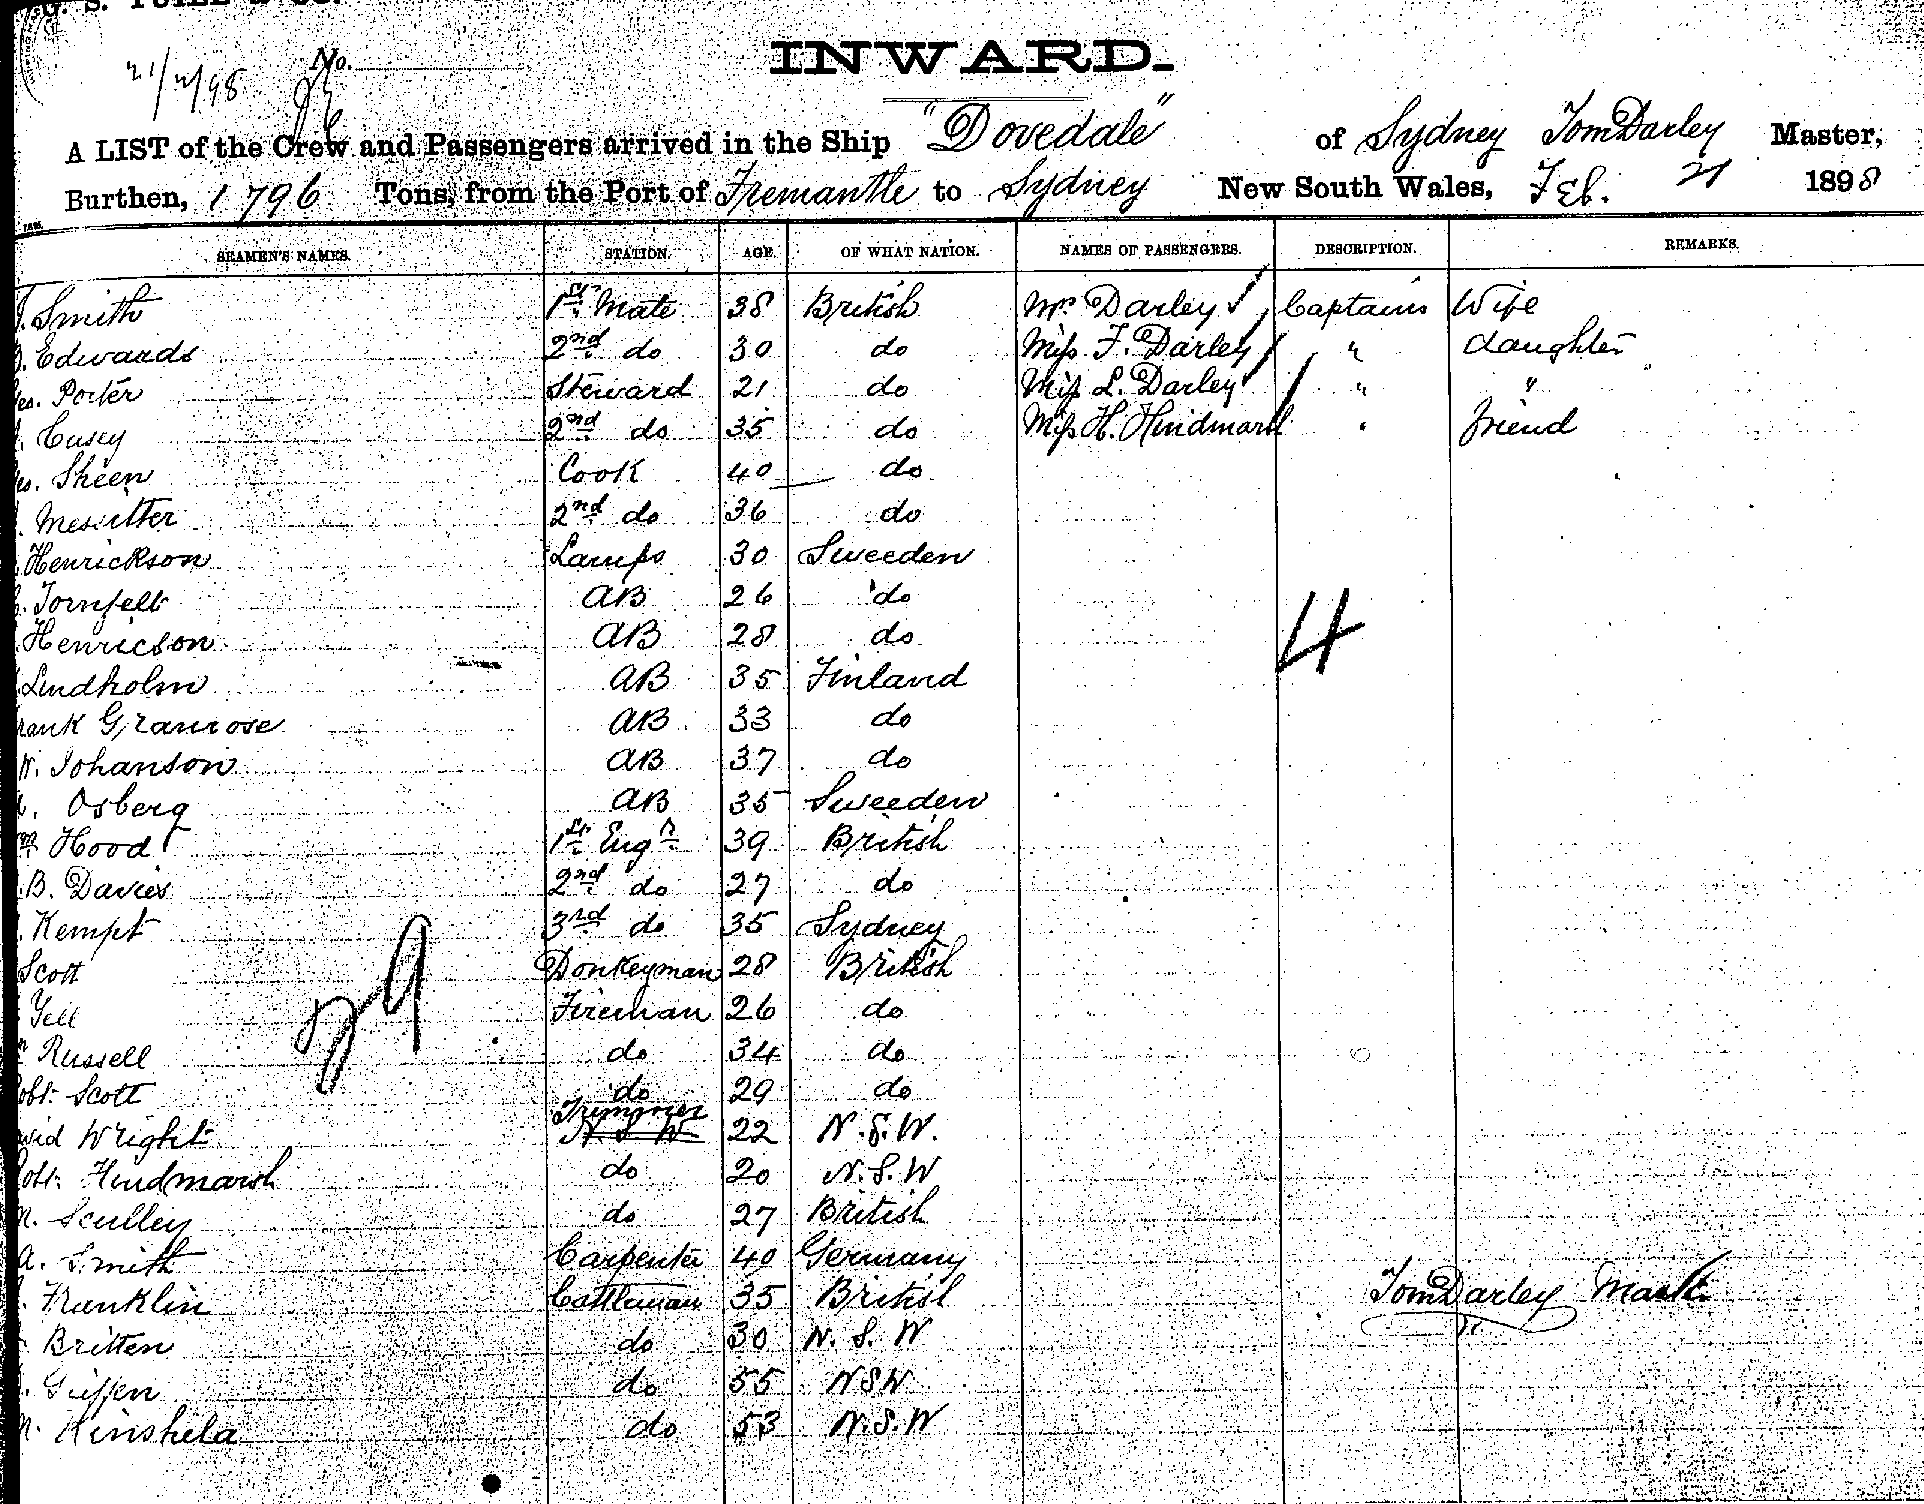 INWARD.
21/2/98 No.
A LIST of the Crew and Passengers arrived in the Ship "Dovedale" of Sydney Tom Darley Master,
Burthen, 1796 Tons, from the Port of Fremantle to Sydney New South Wales, Feb. 21 1898
SEAMEN'S NAMES. STATION. AGE OF WHAT NATION. NAMES OF PASSENGERS. DESCRIPTION. REMARKS.
Smith 1st Mate 38 British Mrs Darley Captains Wife
Edwards 2nd do 30 do Miss F. Darley " daughter
Porter Steward 21 do Miss L. Darley " "
Cusey 2nd do 35 do Miss H. Hindmarsh " friend
Sheen Cook 40 do
2nd do 36 do
Henrickson Lamps 30 Sweeden
Tornfelt AB 26 do
Henricson AB 28 do
4
Lindholm AB 35 Finland
rank Granrose AB 33 do
Johanson AB 37 do
Osberg AB 35 Sweeden
Hood 1st Engr 39 British
B. Davies 2nd do 27 do
Kempt 3rd do 35 Sydney
Scott Donkeyman 28 British
Yell Fireman 26 do
29
Russell do 34 do
obt. Scott do 29 do
Trimmer
avid Wright N S W 22 N.S.W.
obt. Hindmarsh do 20 N.S.W
Sculley do 27 British
A. Smith Carpenter 40 Germany
Franklin Cattleman 35 British Tom Darley Mastr.
Britten do 30 N.S.W
Giffen do 55 NSW
Kinshela do 53 N.S.W